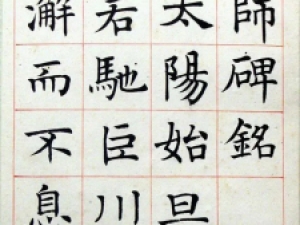 師碑銘
太陽始旦
若馳巨川
澥而不息